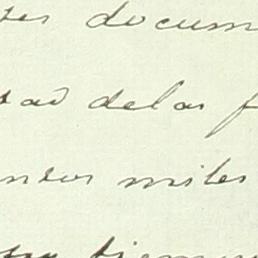 tes docum
tad delas f
ntos miles